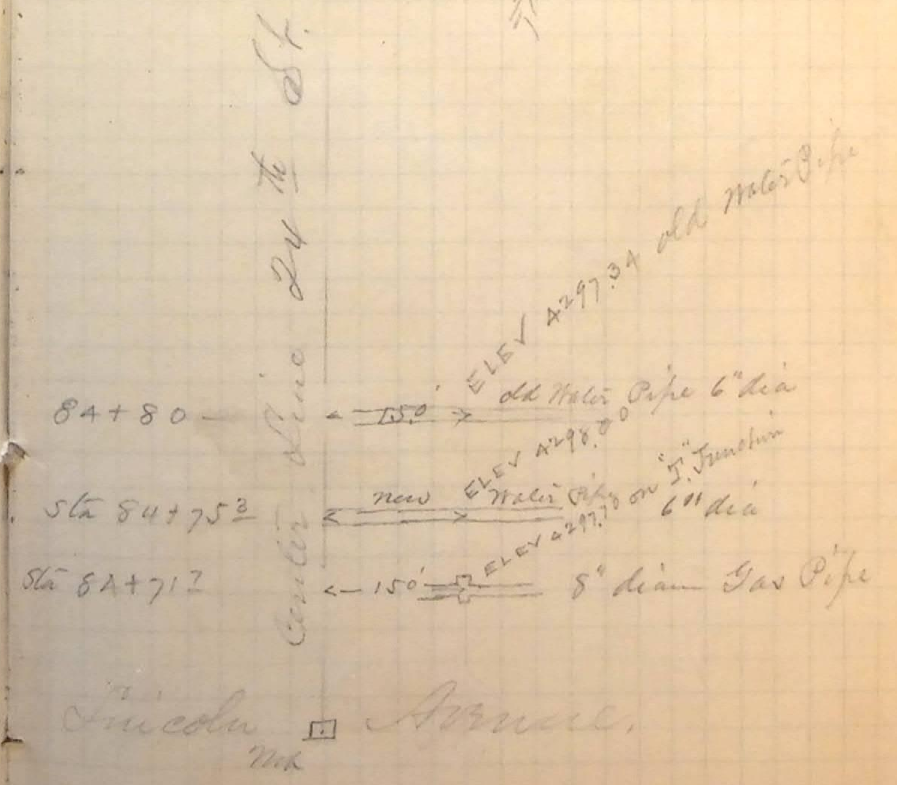 Center Line 24th St.
ELEV 4297.34 old Water Pipe
84+80
15.0'
old Water Pipe 6" dia
ELEV 4298.00
Sta 84+75³
new Water Pipe
6" dia
ELEV 4297.78 on "T" Junction
Sta 84+71²
15.0'
8" diam Gas Pipe
Lincoln Avenue.